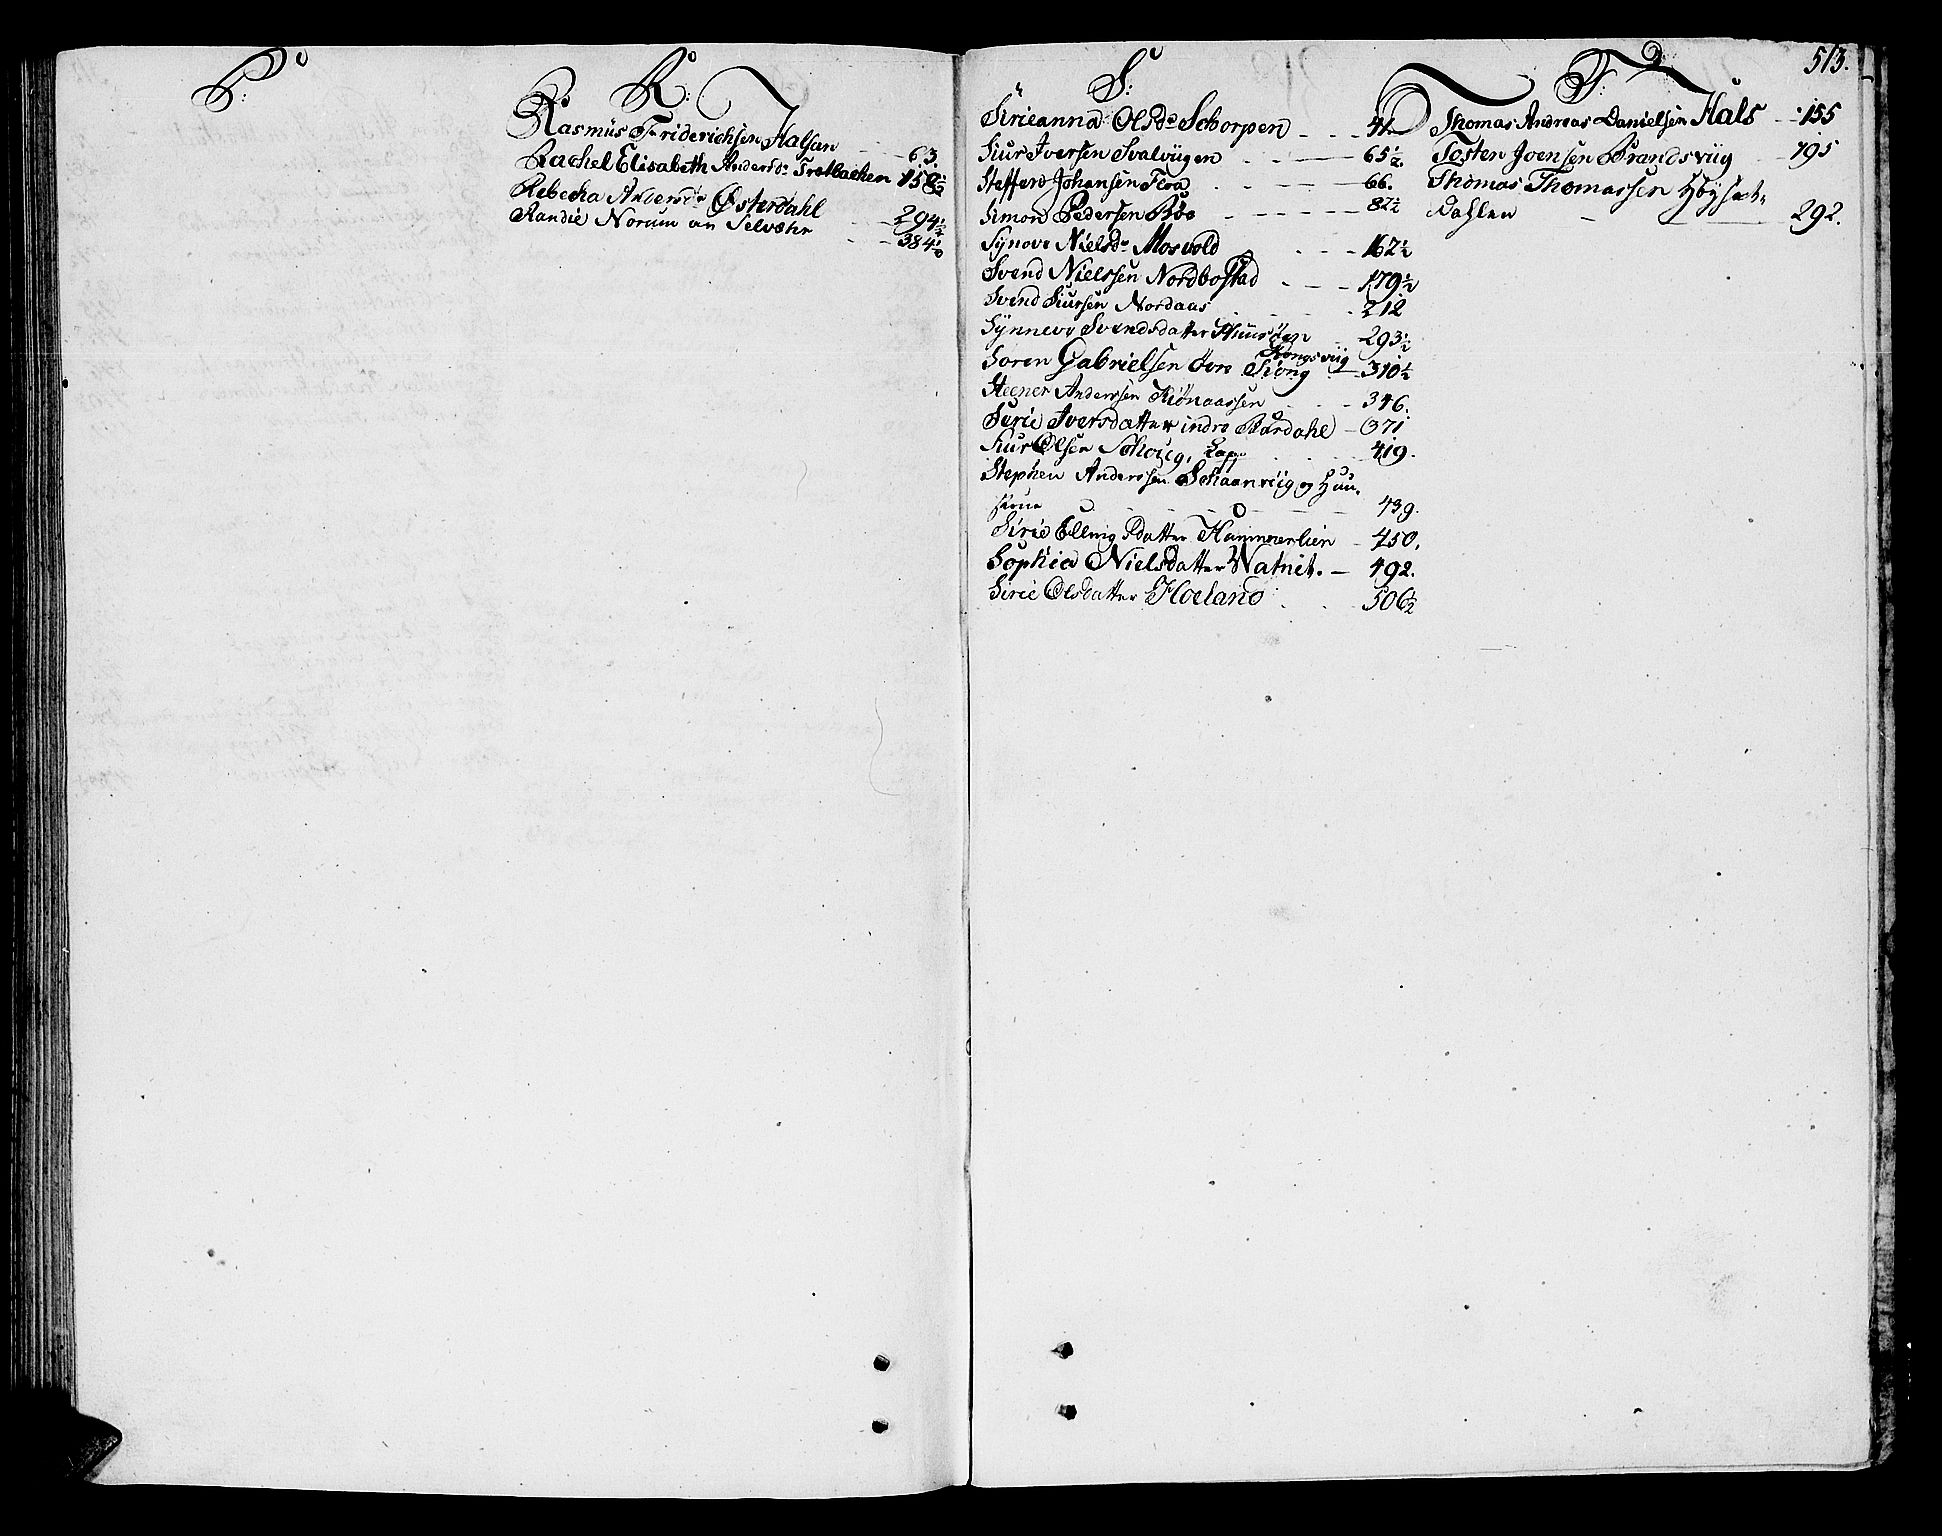 P:
R:
Rasmus Friderichsen Halsan - - 63.
Rachel Elisabeth Andersd: Tretbachen 158½
Rebecka Andersd: Østerdahl - - 294½
Randie Norum on Selvær - - 384½
S:
Sirieanna Olsd: Schorpen - - - 41.
Siur Iversen Svalvugen - - - 65½.
Steffen Johansen Flora - - - 66.
Simon Pedersen Bøe - - - - - - 82½
Synove Nielsd: Mosvold - - - 162½
Svend Nielssen Nordbostad - - - 179½
Svend Siursen Nordaas - 212
Synneve Svendsdatter - 293½
Kongsviig
Soren Gabrielsen øvre - 310½
Steener Anderssen - - 346.
Serie Iversdatter indre Bardahl - 371
Siur Olsen Schoug, Lap - 419.
Stephen Anderssen Schaanviig og
- - - 439.
Sirie Ellingsdatter Hammerlien - 450.
Sophia Nielsdatter Watnet. - 492.
Sirie Olsdatter Hoeland - - 506½
T: 513.
Thomas Andreas Danielsen Hals - - 155
Tosten Joensen Brandsviig - 195
Thomas Thomassen
Dahlen - 292.